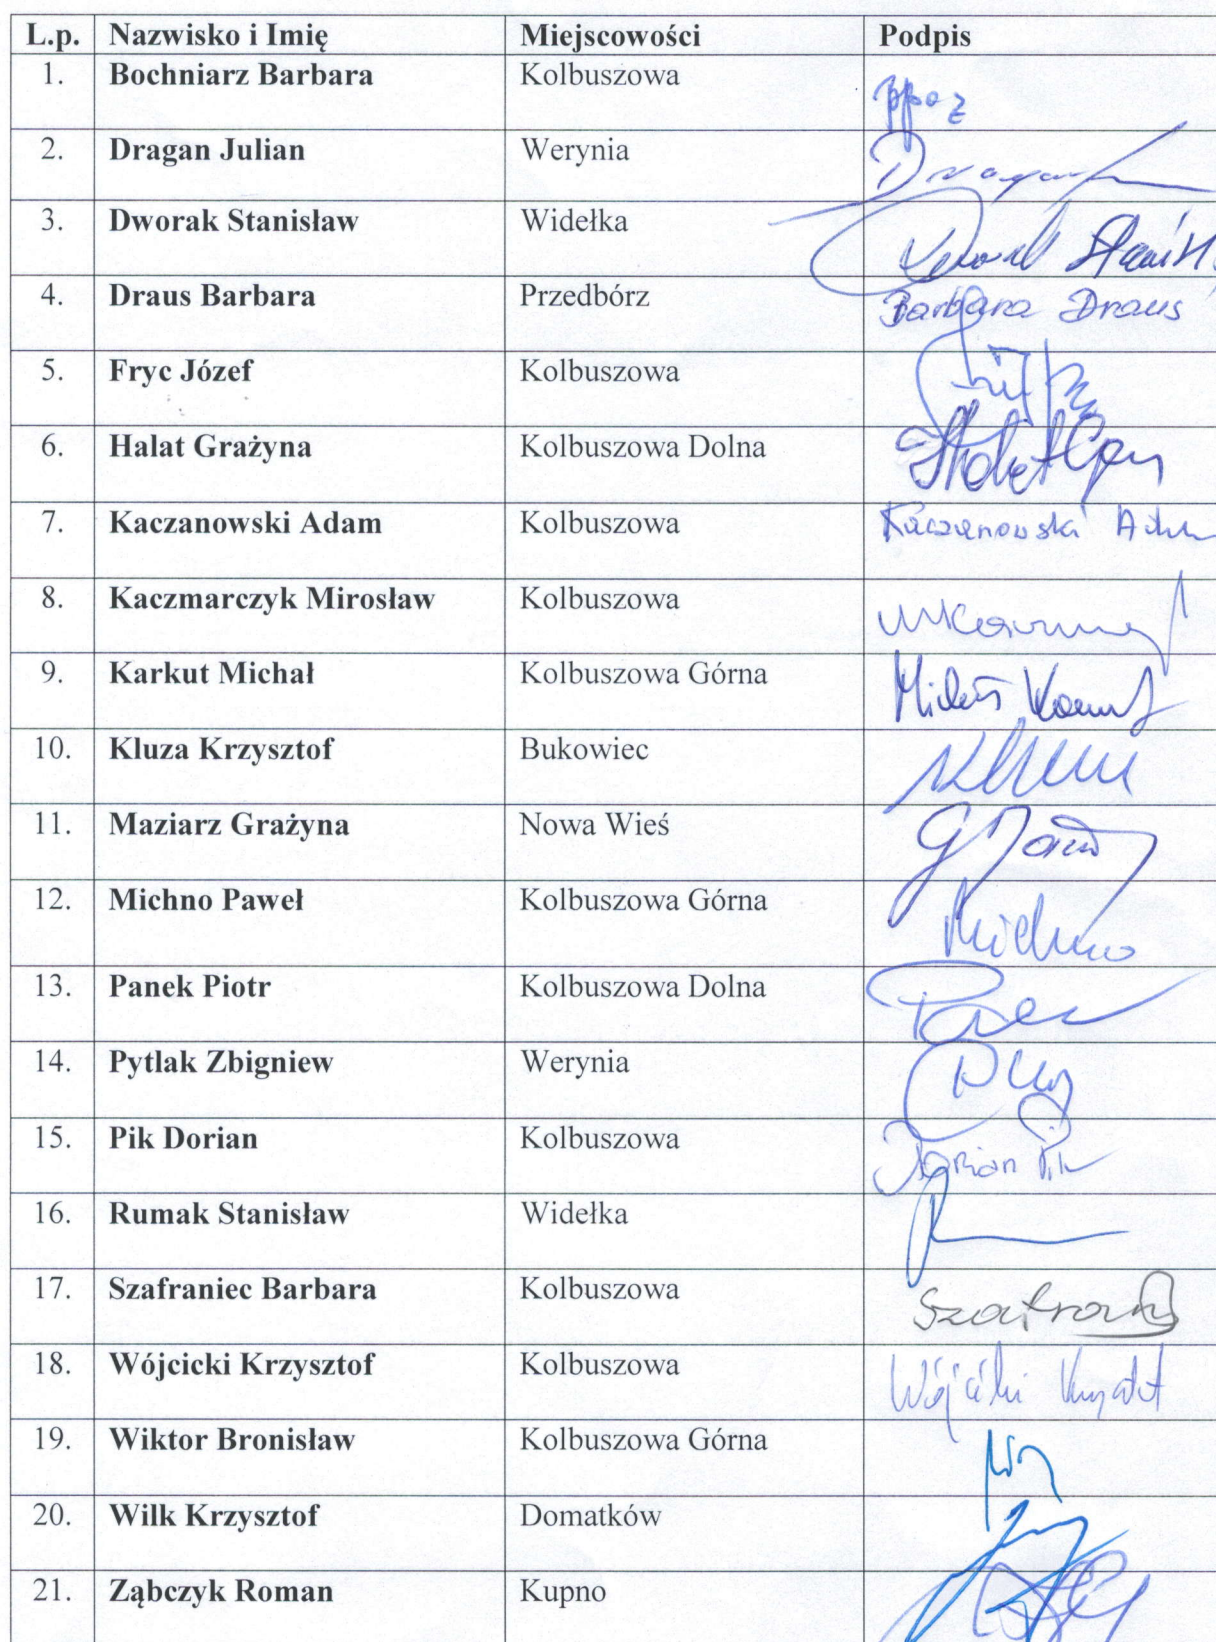 L.p. Nazwisko i Imię Miejscowości Podpis
1. Bochniarz Barbara Kolbuszowa
2. Dragan Julian Werynia Dragan
3. Dworak Stanisław Widełka
4. Draus Barbara Przedbórz Barbara Draus
5. Fryc Józef Kolbuszowa
6. Halat Grażyna Kolbuszowa Dolna
7. Kaczanowski Adam Kolbuszowa Kaczanowski Adam
8. Kaczmarczyk Mirosław Kolbuszowa
9. Karkut Michał Kolbuszowa Górna
10. Kluza Krzysztof Bukowiec
11. Maziarz Grażyna Nowa Wieś
12. Michno Paweł Kolbuszowa Górna Michno
13. Panek Piotr Kolbuszowa Dolna
14. Pytlak Zbigniew Werynia
15. Pik Dorian Kolbuszowa Dorian Pik
16. Rumak Stanisław Widełka
17. Szafraniec Barbara Kolbuszowa
18. Wójcicki Krzysztof Kolbuszowa Wójcicki Krzysztof
19. Wiktor Bronisław Kolbuszowa Górna
20. Wilk Krzysztof Domatków
21. Ząbczyk Roman Kupno